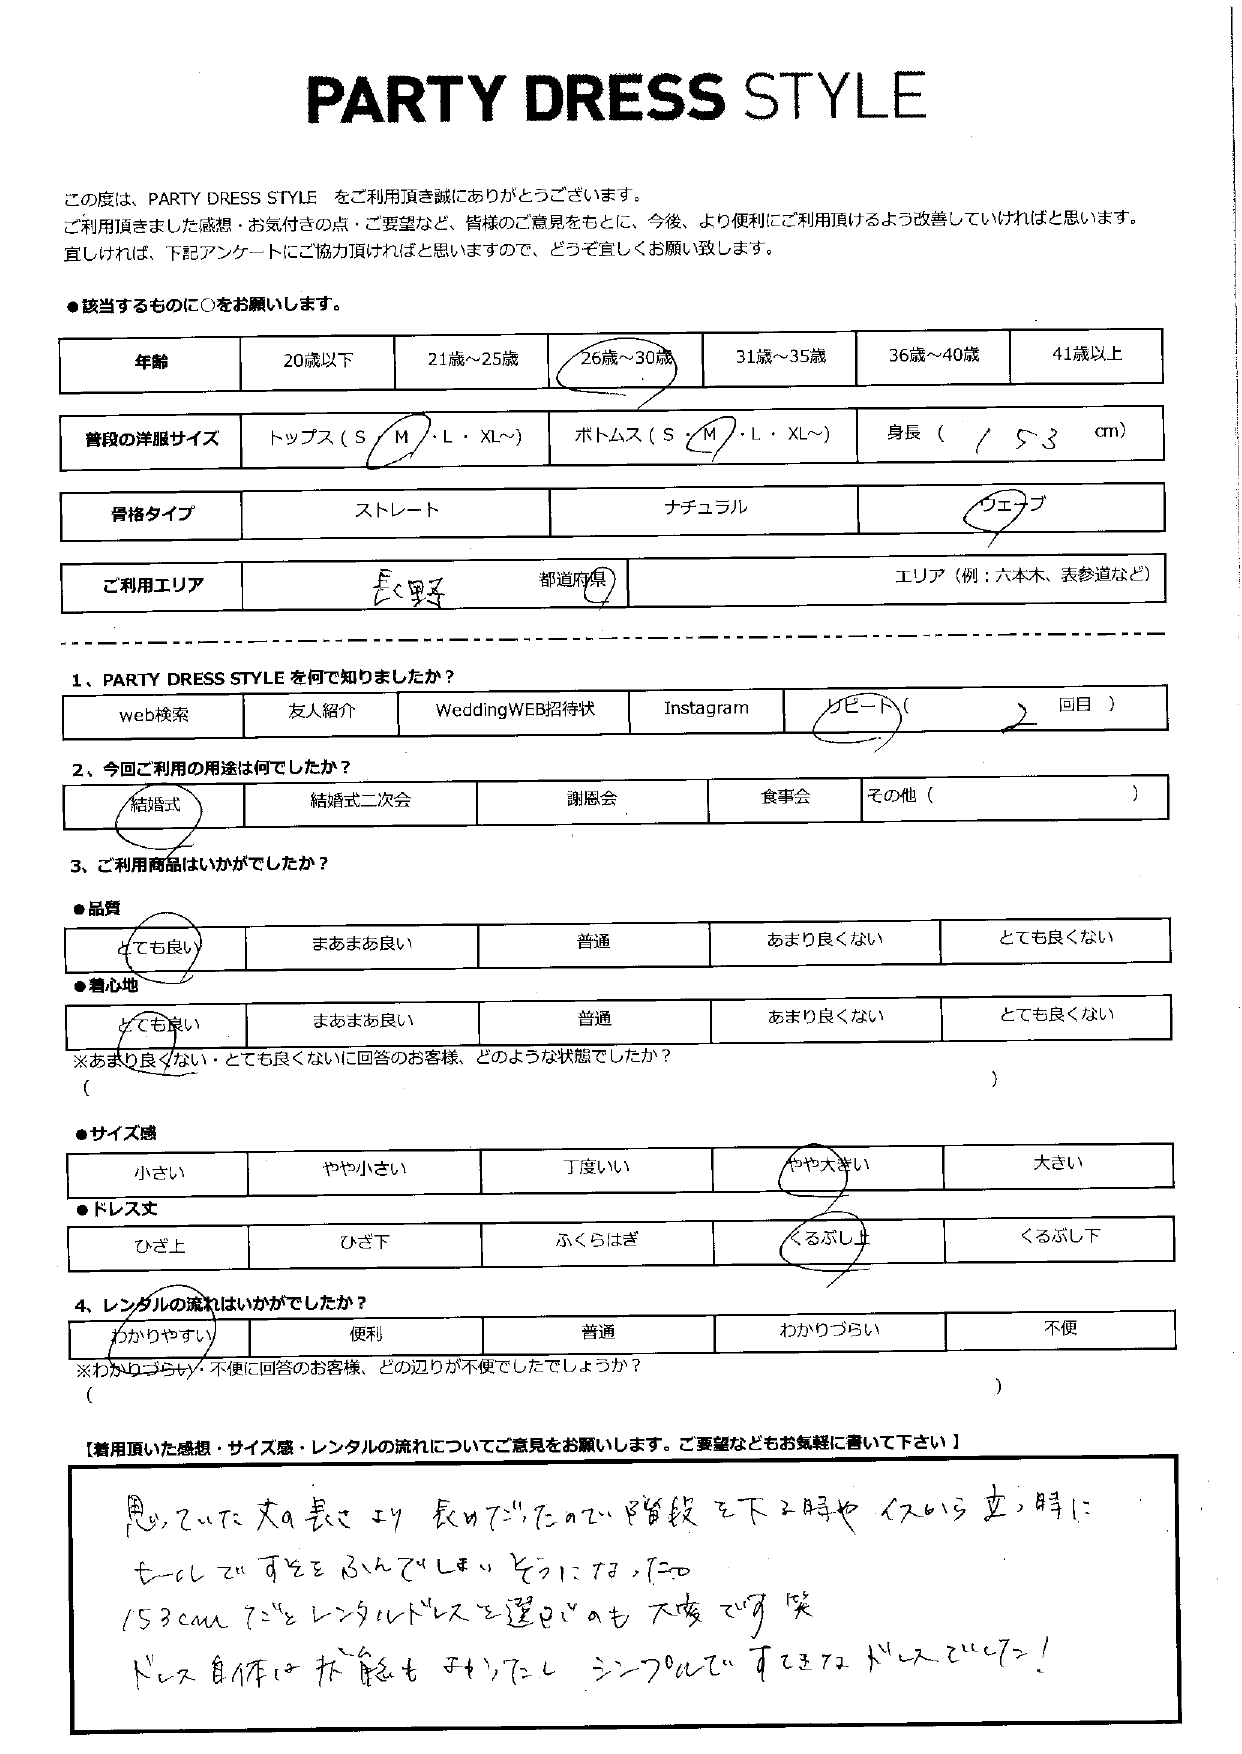 PARTY DRESS STYLE
この度は、PARTY DRESS STYLE をご利用頂き誠にありがとうございます。
ご利用頂きました感想・お気付きの点・ご要望など、皆様のご意見をもとに、今後、より便利にご利用頂けるよう改善していければと思います。
宜しければ、下記アンケートにご協力頂ければと思いますので、どうぞ宜しくお願い致します。
●該当するものに○をお願いします。
年齢 20歳以下 21歳～25歳 26歳～30歳 31歳～35歳 36歳～40歳 41歳以上
普段の洋服サイズ トップス ( S ・ M ・ L ・ XL～) ボトムス ( S ・ M ・ L ・ XL～) 身長 ( 153 cm)
骨格タイプ ストレート ナチュラル ウェーブ
ご利用エリア 長野 都道府県 エリア（例：六本木、表参道など）
1、PARTY DRESS STYLE を何で知りましたか？
web検索 友人紹介 WeddingWEB招待状 Instagram リピート ( 2 回目 )
2、今回ご利用の用途は何でしたか？
結婚式 結婚式二次会 謝恩会 食事会 その他 ( )
3、ご利用商品はいかがでしたか？
●品質
とても良い まあまあ良い 普通 あまり良くない とても良くない
●着心地
とても良い まあまあ良い 普通 あまり良くない とても良くない
※あまり良くない・とても良くないに回答のお客様、どのような状態でしたか？
( )
●サイズ感
小さい やや小さい 丁度いい やや大きい 大きい
●ドレス丈
ひざ上 ひざ下 ふくらはぎ くるぶし上 くるぶし下
4、レンタルの流れはいかがでしたか？
わかりやすい 便利 普通 わかりづらい 不便
※わかりづらい・不便に回答のお客様、どの辺りが不便でしたでしょうか？
( )
【着用頂いた感想・サイズ感・レンタルの流れについてご意見をお願いします。ご要望などもお気軽に書いて下さい 】
思っていた丈の長さより 長めだったので 階段を下る時や イスから立つ時に
ヒールで すそを ふんでしまいそうになった
153cm だと レンタルドレスを選ぶのも 大変です 笑
ドレス自体は 状態も よかったし シンプルで すてきな ドレスでした！